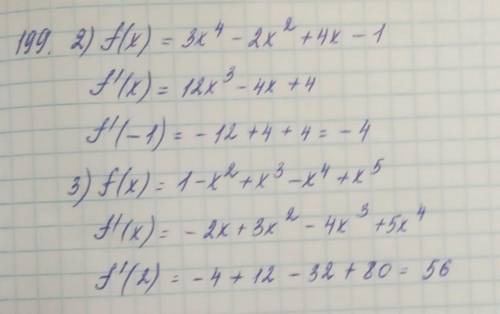 199. 2) f(x) = 3x⁴ - 2x² + 4x - 1
f'(x) = 12x³ - 4x + 4
f'(-1) = -12 + 4 + 4 = -4
3) f(x) = 1 - x² + x³ - x⁴ + x⁵
f'(x) = -2x + 3x² - 4x³ + 5x⁴
f'(2) = -4 + 12 - 32 + 80 = 56